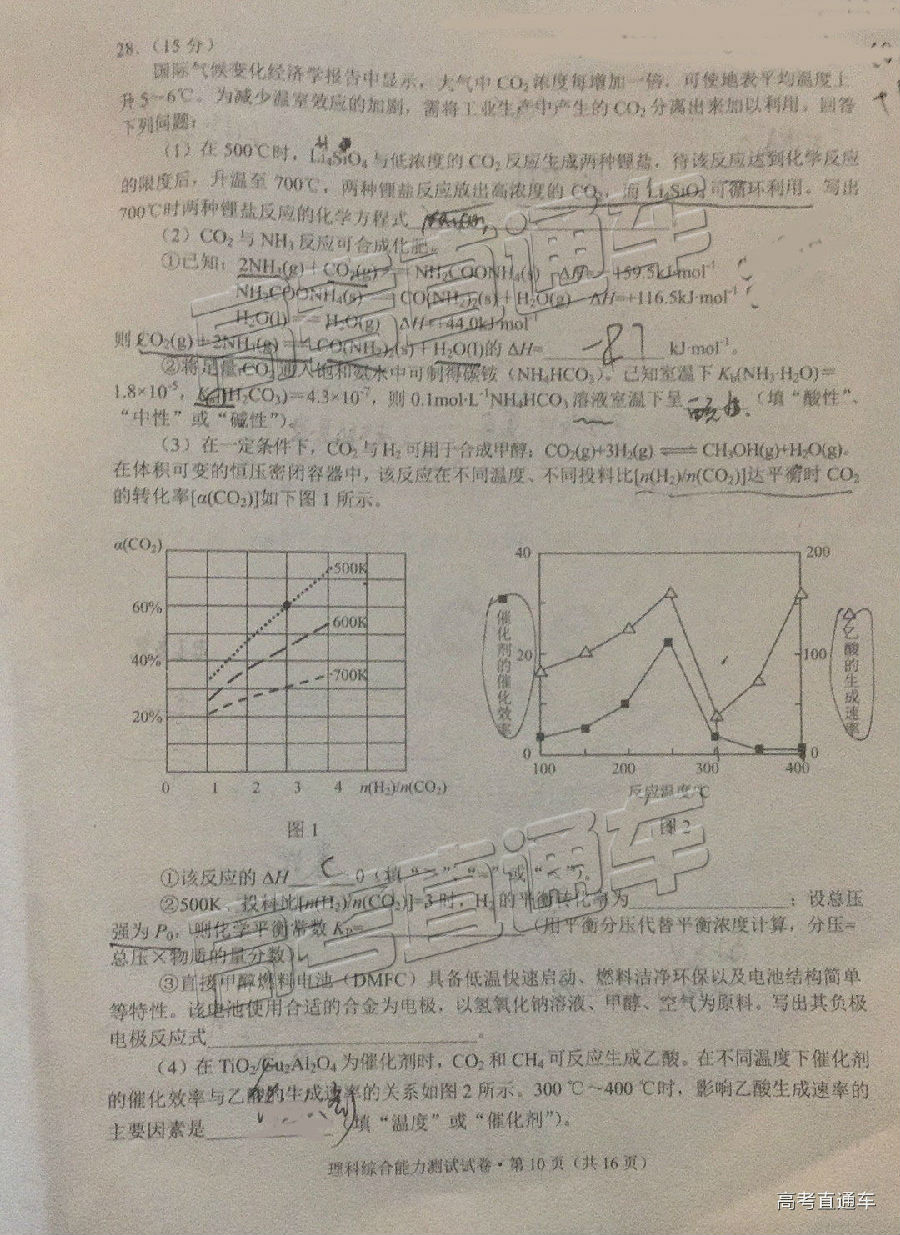 28.（15分）
国际气候变化经济学报告中显示，大气中CO₂浓度每增加一倍，可使地表平均温度上
升5~6℃。为减少温室效应的加剧，需将工业生产中产生的CO₂分离出来加以利用。回答
下列问题：
（1）在500℃时，Li₄SiO₄与低浓度的CO₂反应生成两种锂盐，待该反应达到化学反应
的限度后，升温至700℃，两种锂盐反应放出高浓度的CO₂，而Li₄SiO₄可循环利用。写出
700℃时两种锂盐反应的化学方程式
（2）CO₂与NH₃反应可合成化肥。
①已知：2NH₃(g)+CO₂(g)==NH₂COONH₄(s) ΔH= 159.5kJ·mol⁻¹
NH₂COONH₄(s)==CO(NH₂)₂(s)+H₂O(g) ΔH=+116.5kJ·mol⁻¹
H₂O(l)==H₂O(g) ΔH=+44.0kJ·mol⁻¹
则CO₂(g)+2NH₃(g)==CO(NH₂)₂(s)+H₂O(l)的ΔH= -87 kJ·mol⁻¹。
②将足量CO₂通入饱和氨水中可制得碳铵（NH₄HCO₃）。已知室温下K_b(NH₃·H₂O)=
1.8×10⁻⁵，K_a1(H₂CO₃)=4.3×10⁻⁷，则0.1mol·L⁻¹NH₄HCO₃溶液室温下呈 （填“酸性”、
“中性”或“碱性”）。
（3）在一定条件下，CO₂与H₂可用于合成甲醇：CO₂(g)+3H₂(g)⇌CH₃OH(g)+H₂O(g)。
在体积可变的恒压密闭容器中，该反应在不同温度、不同投料比[n(H₂)/n(CO₂)]达平衡时CO₂
的转化率[α(CO₂)]如下图1所示。
α(CO₂)
60%
40%
20%
500K
600K
700K
0 1 2 3 4 n(H₂)/n(CO₂)
图1
40
20
0
■催化剂的催化效率
200
100
0
△乙酸的生成速率
100 200 300 400
反应温度/℃
图2
①该反应的ΔH < 0（填“>”、“=”或“<”）。
②500K、投料比[n(H₂)/n(CO₂)]=3时，H₂的平衡转化率为 ；设总压
强为P₀，则化学平衡常数K_P= （用平衡分压代替平衡浓度计算，分压=
总压×物质的量分数）。
③直接甲醇燃料电池（DMFC）具备低温快速启动、燃料洁净环保以及电池结构简单
等特性。该电池使用合适的合金为电极，以氢氧化钠溶液、甲醇、空气为原料。写出其负极
电极反应式 。
（4）在TiO₂/Cu₂Al₂O₄为催化剂时，CO₂和CH₄可反应生成乙酸。在不同温度下催化剂
的催化效率与乙酸的生成速率的关系如图2所示。300℃~400℃时，影响乙酸生成速率的
主要因素是 （填“温度”或“催化剂”）。
理科综合能力测试试卷·第10页（共16页）
高考直通车
高考直通车
高考直通车